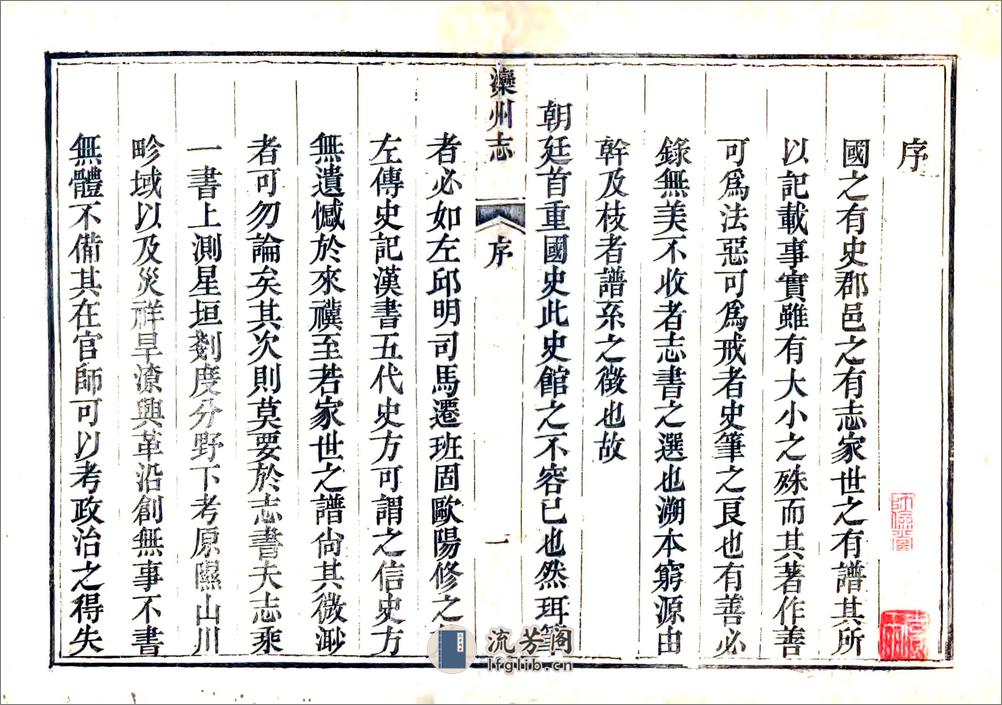 序
國之有史郡邑之有志家世之有譜其所
以記載事實雖有大小之殊而其著作善
可爲法惡可爲戒者史筆之良也有善必
錄無美不收者志書之選也溯本窮源由
幹及枝者譜系之徵也故
朝廷首重國史此史館之不容已也然珥筆
灤州志
序
一
者必如左邱明司馬遷班固歐陽修之
左傳史記漢書五代史方可謂之信史方
無遺憾於來禩至若家世之譜尙其微渺
者可勿論矣其次則莫要於志書夫志乘
一書上測星垣剡度分野下考原隰山川
畛域以及災祥旱潦興革沿創無事不書
無體不備其在官師可以考政治之得失
流芳閣
lfglib.cn